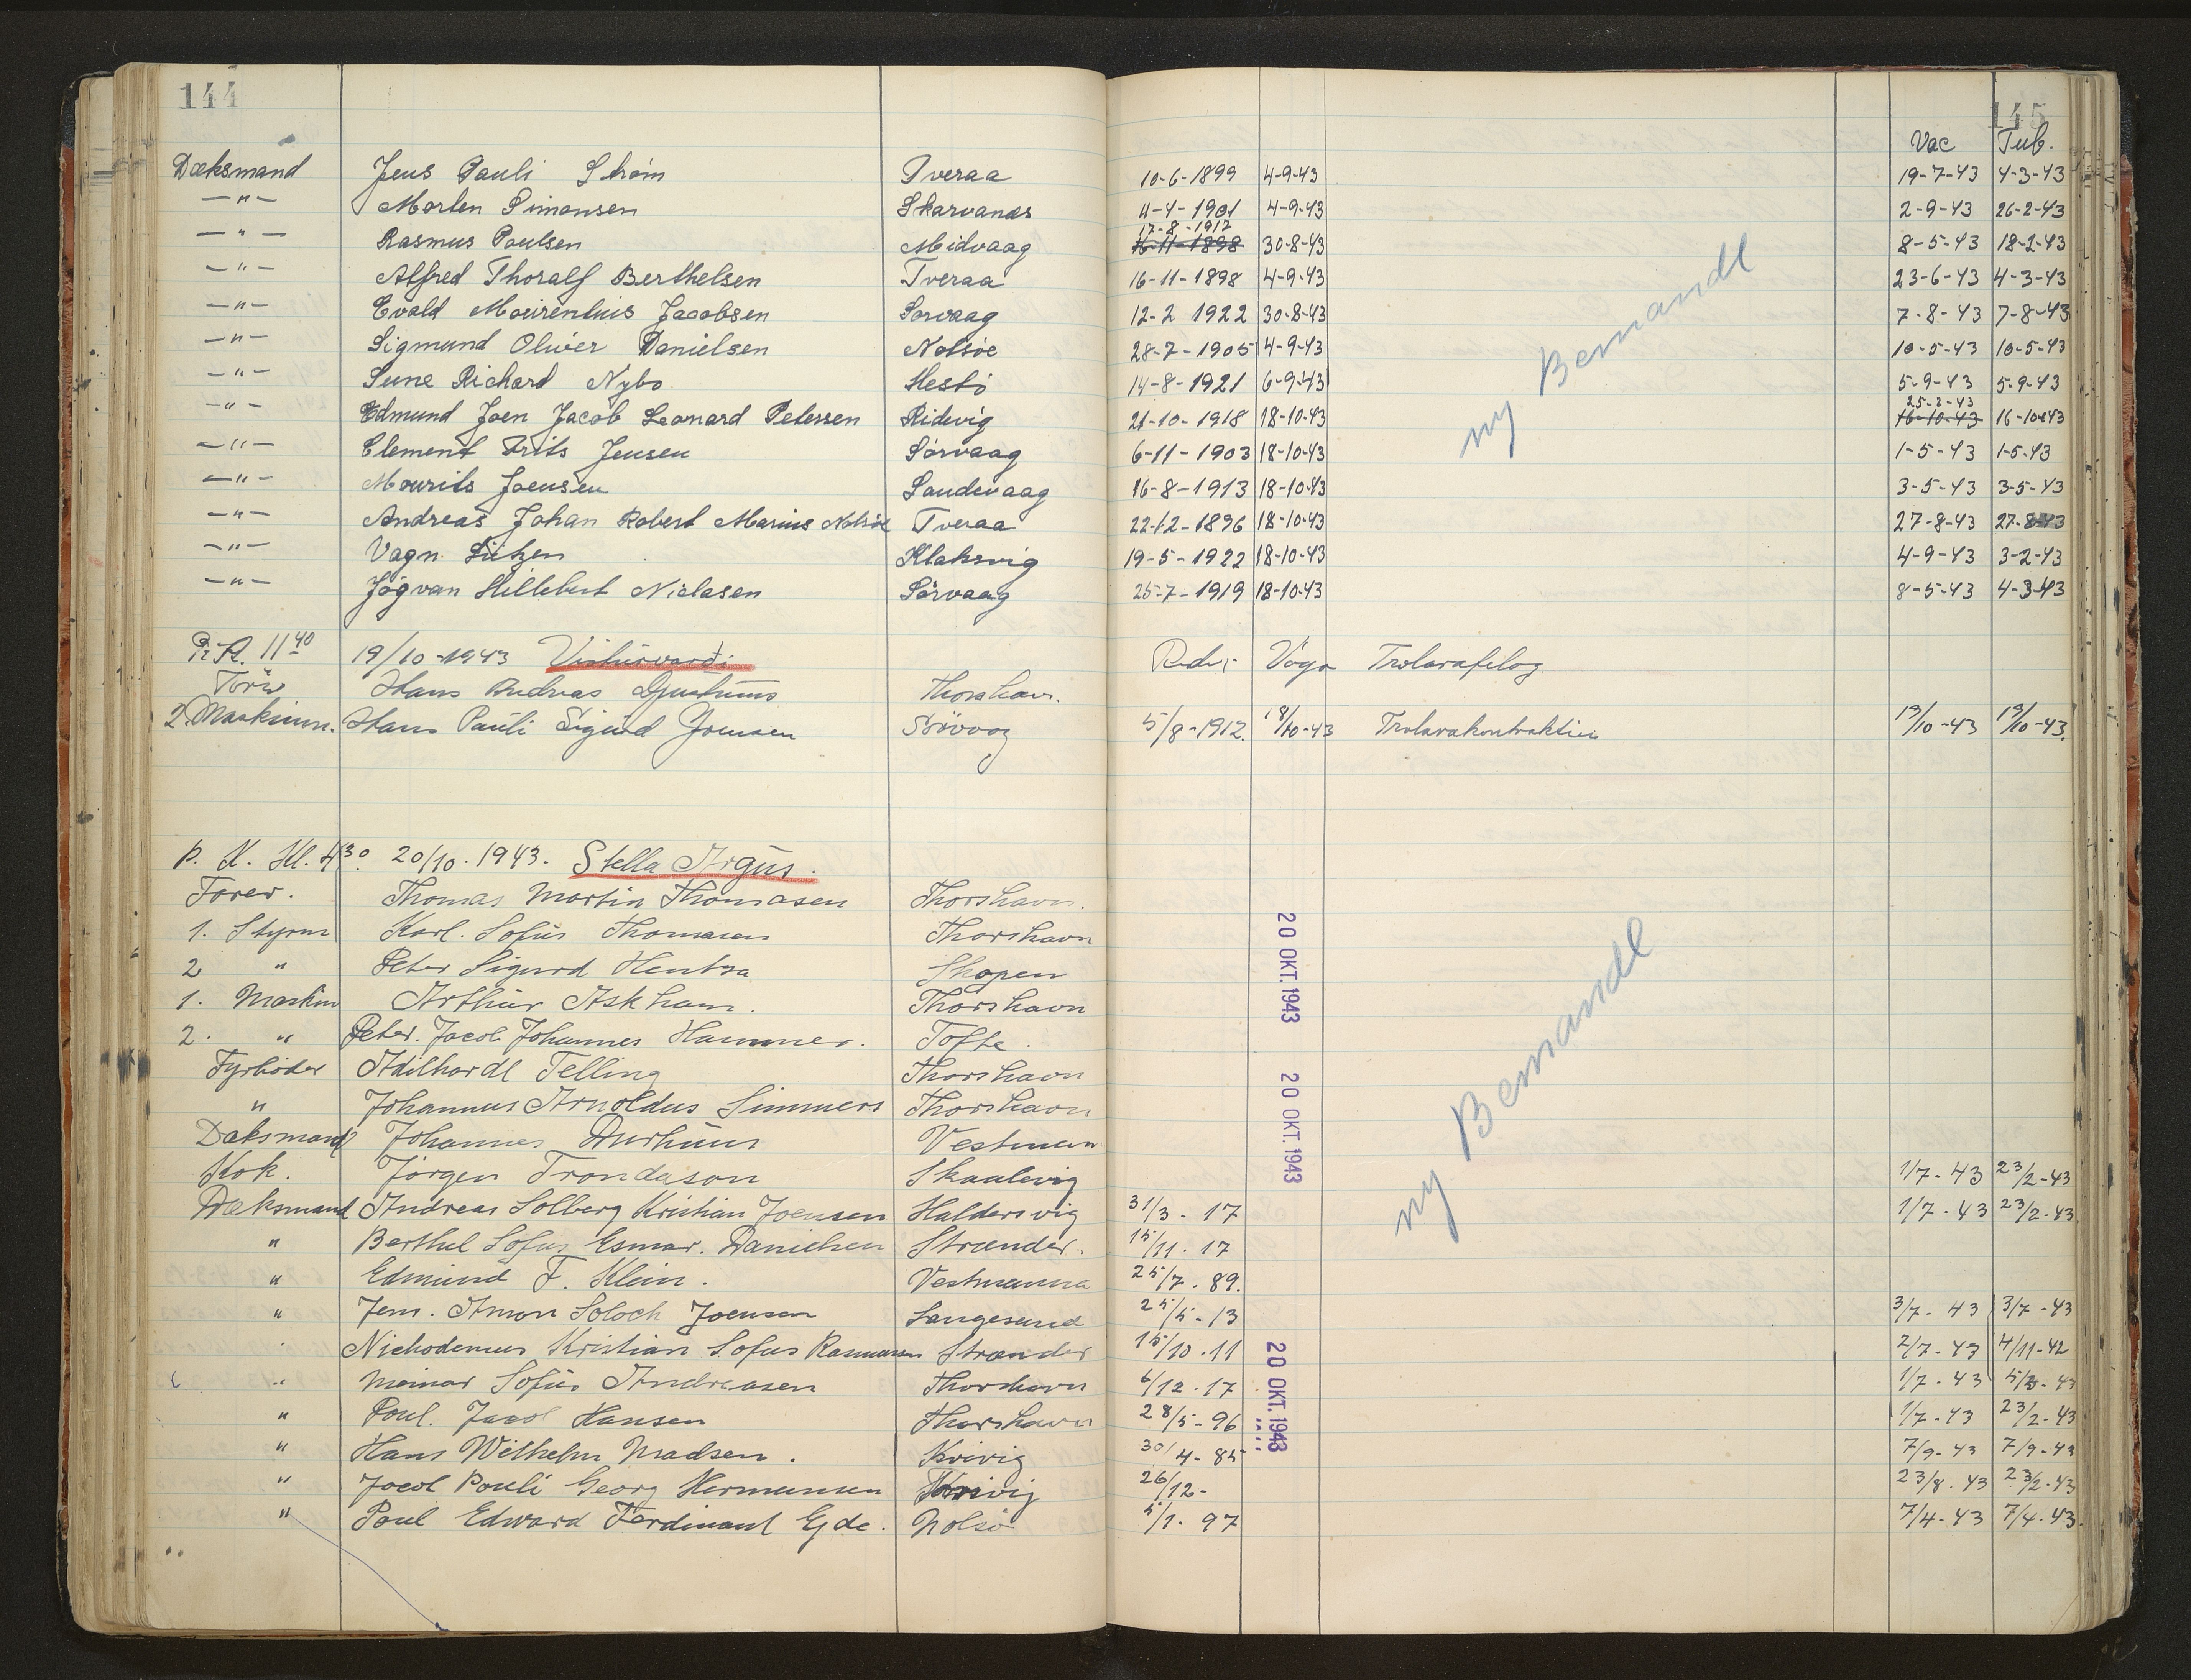 144
145
Vac Tub.
Dæksmand Jens Pauli Strøm Tveraa 10-6-1899 4-9-43 19-7-43 4-3-43
—"— Morten Simonsen Skarvanes 4-4-1901 4-9-43 2-9-43 26-2-43
17-8-1912
—"— Rasmus Poulsen Midvaag 16-11-1898 30-8-43 8-5-43 18-2-43
—"— Alfred Thoralf Berthelsen Tveraa 16-11-1898 4-9-43 23-6-43 4-3-43
—"— Evald Mourentius Jacobsen Sorvaag 12-2 1922 30-8-43 7-8-43 7-8-43
—"— Sigmund Oliver Danielsen Nolsöe 28-7-1905 4-9-43 10-5-43 10-5-43
—"— Sune Richard Nybo Hestö 14-8-1921 6-9-43 5-9-43 5-9-43
25-2-43
—"— Edmund Joen Jacob Leonard Petersen Ridevig 21-10-1918 18-10-43 16-10-43 16-10-43
—"— Clement Frits Jensen Sörvaag 6-11-1903 18-10-43 1-5-43 1-5-43
—"— Mourits Joensen Sandevaag 16-8-1913 18-10-43 3-5-43 3-5-43
—"— Andreas Johan Robert Marius Nolsöe Tveraa 22-12-1896 18-10-43 27-8-43 27-8-43
—"— Vagn Lützen Klaksvig 19-5-1922 18-10-43 4-9-43 3-2-43
—"— Jógvan Hillebert Niclasen Sörvaag 25-7-1919 18-10-43 8-5-43 4-3-43
ny Bemandl
11 40 19/10-1943 Vesturvarði Reder Vága Trolarafelag
Hans Andreas Djurhuus Thorshavn.
2. Maskinm. Hans Pauli Sigurd Joensen Sövvog 5/8-1912. 18/10-43 Trolarakontraktin 19/10-43 19/10-43.
P. K. Kl. 4 30. 20/10. 1943. Stella Argus.
Förer. Thomas Martin Thomasen Thorshavn.
1. Styrm Karl. Sofus Thomasen Thorshavn
2 " Peter Sigurd Hentza Skopen
1. Maskin Arthur Askham. Thorshavn
2. " Peter. Jacob Johannes Hammer. Tofte.
Fyrböder Adilhardt Telling Thorshavn
" Johannus Arnoldus Simmers Thorshavn
Dæksmand Johannes Durhuus Vestman
Kok. Jörgen Trondason Skaalevig 1/7-43 23/2-43
Dæksmand Andreas Solberg Kristian Joensen Haldersvig 31/3-17 1/7-43 23/2-43
" Berthel Sofus Esmar. Danielsen Strænder. 15/11. 17
" Edmund F. Klein. Vestmanna 25/7. 89.
" Jens. Amon Soloch Joensen Langesand 25/5-13 3/7-43 3/7-43
" Nichodemus Kristian Sofus Rasmussen Strænder 15/10.11 2/7-43 4/11-42
" Meinar Sofus Andreasen Thorshavn 6/12.17 1/7-43
" Poul. Jacob Hansen Thorshavn 28/5-96 1/7-43 23/2-43
" Hans Wilhelm Madsen. Kvivig 30/4-85 7/9-43 7/9-43
" Jacob Pouli Georg Hermansen Kvivig 26/12- 23/8-43 23/2-43
" Poul Edward Ferdinant Ejde. Nolsö 5/1-97 7/4-43 7/4-43.
20 OKT. 1943
20 OKT. 1943
20 OKT. 1943
ny Bemandl